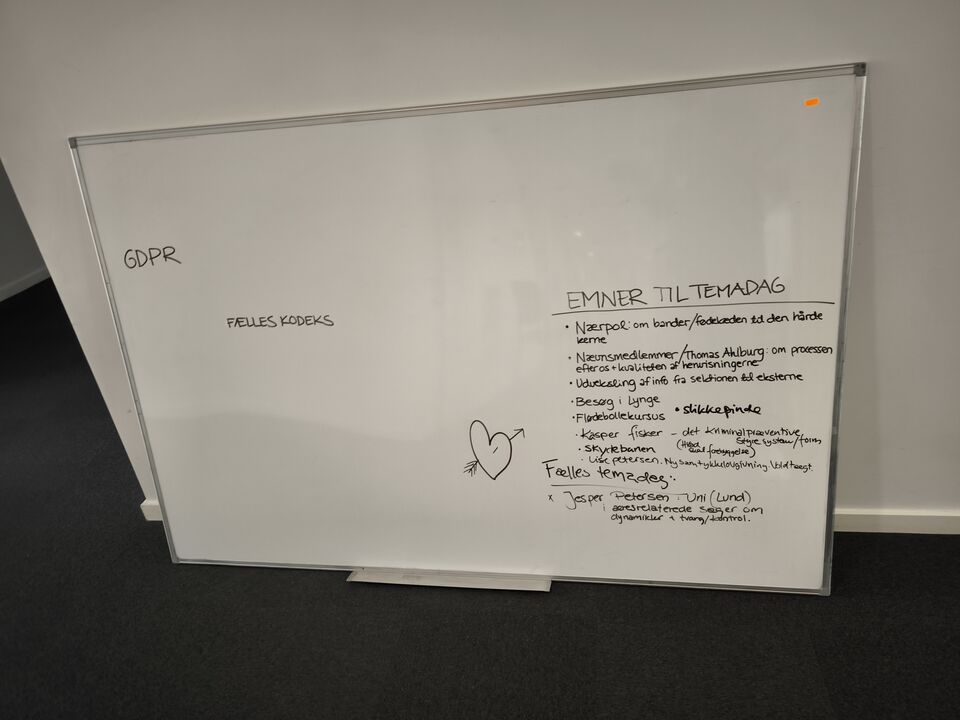 GDPR
FÆLLES KODEKS
EMNER TIL TEMADAG
• Nærpol: om bander/fødekæden til den hårde
kerne
• Nævnsmedlemmer/Thomas Ahlburg: om processen
efter os + kvaliteten af henvisningerne
• Udveksling af info fra sektionen til eksterne
• Besøg i Lynge
• Flødebollekursus • slikkepinde
• Kasper fisker – det kriminalpræventive
(Hvad styresystem/form
skal forebygge)
• skydebanen
• Lise Petersen. Ny samtykkelovgivning. Voldtægt.
Fælles temadag:
x Jesper Petersen. Uni (Lund)
i æresrelaterede sager om
dynamikker + tvang/kontrol.